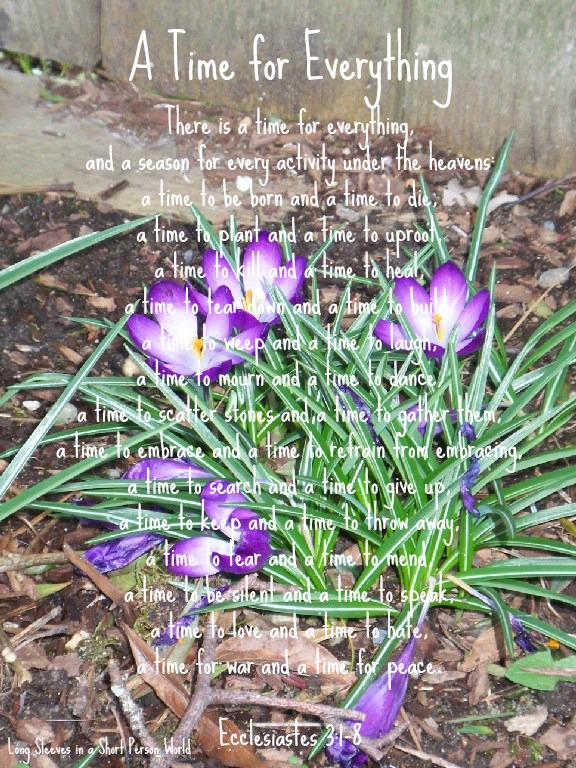 A Time for Everything
There is a time for everything,
and a season for every activity under the heavens:
a time to be born and a time to die,
a time to plant and a time to uproot,
a time to kill and a time to heal,
a time to tear down and a time to build,
a time to weep and a time to laugh,
a time to mourn and a time to dance,
a time to scatter stones and a time to gather them,
a time to embrace and a time to refrain from embracing,
a time to search and a time to give up,
a time to keep and a time to throw away,
a time to tear and a time to mend,
a time to be silent and a time to speak,
a time to love and a time to hate,
a time for war and a time for peace.
Ecclesiastes 3:1-8
Long Sleeves in a Short Person World